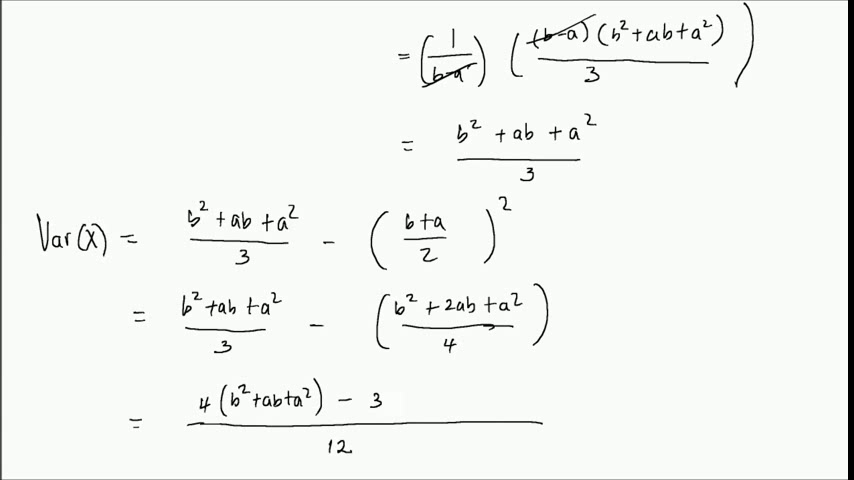 = (1/(b-a)) ((b-a)(b²+ab+a²)/3)
= (b² + ab + a²)/3
Var(X) = (b² + ab + a²)/3 - ((b+a)/2)²
= (b² + ab + a²)/3 - ((b² + 2ab + a²)/4)
= (4(b²+ab+a²) - 3)/12